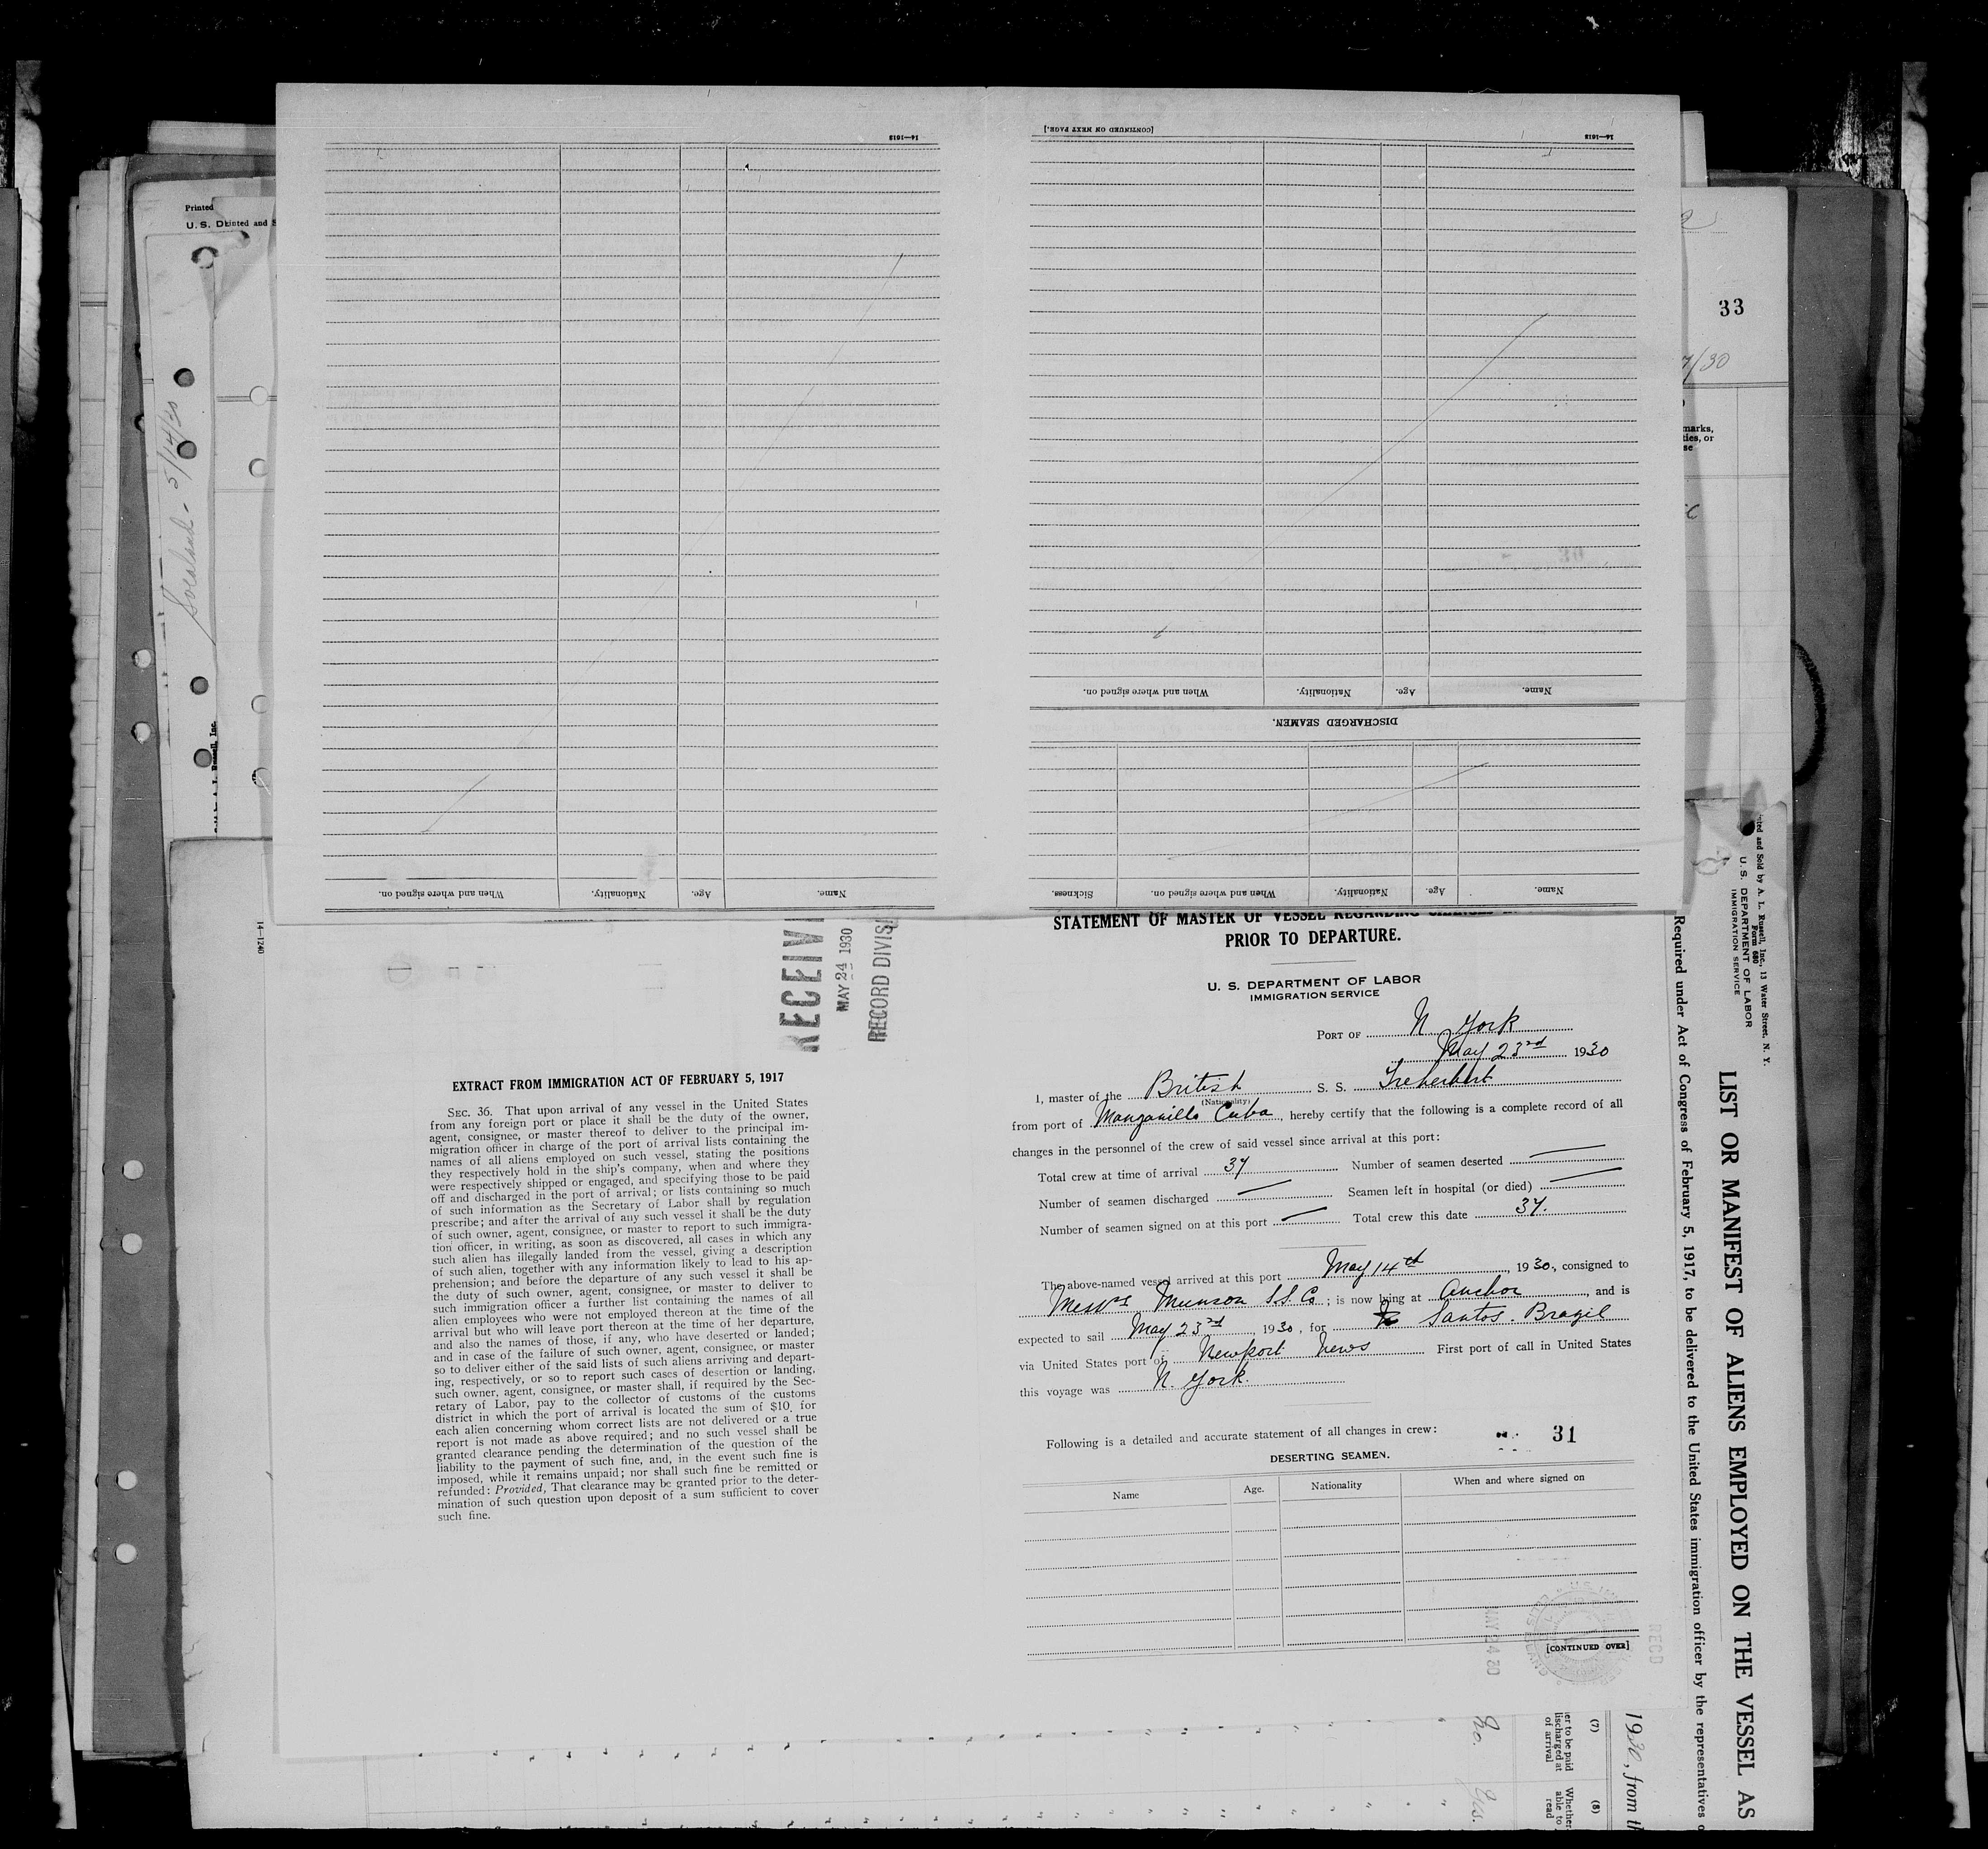 [CONTINUED ON NEXT PAGE.]
14—1618
14—1618
Printed
U. S. D
inted and S
33
7/30
marks,
ties, or
se
5/14/30
When and where signed on.
Nationality.
Age.
Name.
DISCHARGED SEAMEN.
When and where signed on.
Nationality.
Age.
Name.
Sickness.
When and where signed on.
Nationality.
Age.
Name.
14—1240
RECEIV
MAY 24 1930
RECORD DIVIS
EXTRACT FROM IMMIGRATION ACT OF FEBRUARY 5, 1917
SEC. 36. That upon arrival of any vessel in the United States
from any foreign port or place it shall be the duty of the owner,
agent, consignee, or master thereof to deliver to the principal im-
migration officer in charge of the port of arrival lists containing the
names of all aliens employed on such vessel, stating the positions
they respectively hold in the ship's company, when and where they
were respectively shipped or engaged, and specifying those to be paid
off and discharged in the port of arrival; or lists containing so much
of such information as the Secretary of Labor shall by regulation
prescribe; and after the arrival of any such vessel it shall be the duty
of such owner, agent, consignee, or master to report to such immigra-
tion officer, in writing, as soon as discovered, all cases in which any
such alien has illegally landed from the vessel, giving a description
of such alien, together with any information likely to lead to his ap-
prehension; and before the departure of any such vessel it shall be
the duty of such owner, agent, consignee, or master to deliver to
such immigration officer a further list containing the names of all
alien employees who were not employed thereon at the time of the
arrival but who will leave port thereon at the time of her departure,
and also the names of those, if any, who have deserted or landed;
and in case of the failure of such owner, agent, consignee, or master
so to deliver either of the said lists of such aliens arriving and depart-
ing, respectively, or so to report such cases of desertion or landing,
such owner, agent, consignee, or master shall, if required by the Sec-
retary of Labor, pay to the collector of customs of the customs
district in which the port of arrival is located the sum of $10 for
each alien concerning whom correct lists are not delivered or a true
report is not made as above required; and no such vessel shall be
granted clearance pending the determination of the question of the
liability to the payment of such fine, and, in the event such fine is
imposed, while it remains unpaid; nor shall such fine be remitted or
refunded: Provided, That clearance may be granted prior to the deter-
mination of such question upon deposit of a sum sufficient to cover
such fine.
STATEMENT OF MASTER OF VESSEL REGARDING CHANGES
PRIOR TO DEPARTURE.
U. S. DEPARTMENT OF LABOR
IMMIGRATION SERVICE
PORT OF N York
May 23rd 1930
I, master of the British S. S. Treherbert
(Nationality)
from port of Manzanillo Cuba, hereby certify that the following is a complete record of all
changes in the personnel of the crew of said vessel since arrival at this port:
Total crew at time of arrival 37 Number of seamen deserted —
Number of seamen discharged — Seamen left in hospital (or died) —
Number of seamen signed on at this port — Total crew this date 37.
The above-named vessel arrived at this port May 14th, 1930, consigned to
Messrs Munson S.S. Co.; is now lying at Anchor, and is
expected to sail May 23rd 1930, for Santos. Brazil
via United States port of Newport News First port of call in United States
this voyage was N. York.
Following is a detailed and accurate statement of all changes in crew:
31
DESERTING SEAMEN.
Name Age. Nationality When and where signed on
[CONTINUED OVER]
MAY 24 30
REC'D
No.
Yes.
(7)
er to be paid
discharged at
of arrival
(8)
Whether
able to
read
1930, from th
nted and Sold by A. L. Russell, Inc., 13 Water Street, N. Y.
Form 680
U. S. DEPARTMENT OF LABOR
IMMIGRATION SERVICE
LIST OR MANIFEST OF ALIENS EMPLOYED ON THE VESSEL AS
Required under Act of Congress of February 5, 1917, to be delivered to the United States immigration officer by the representatives o